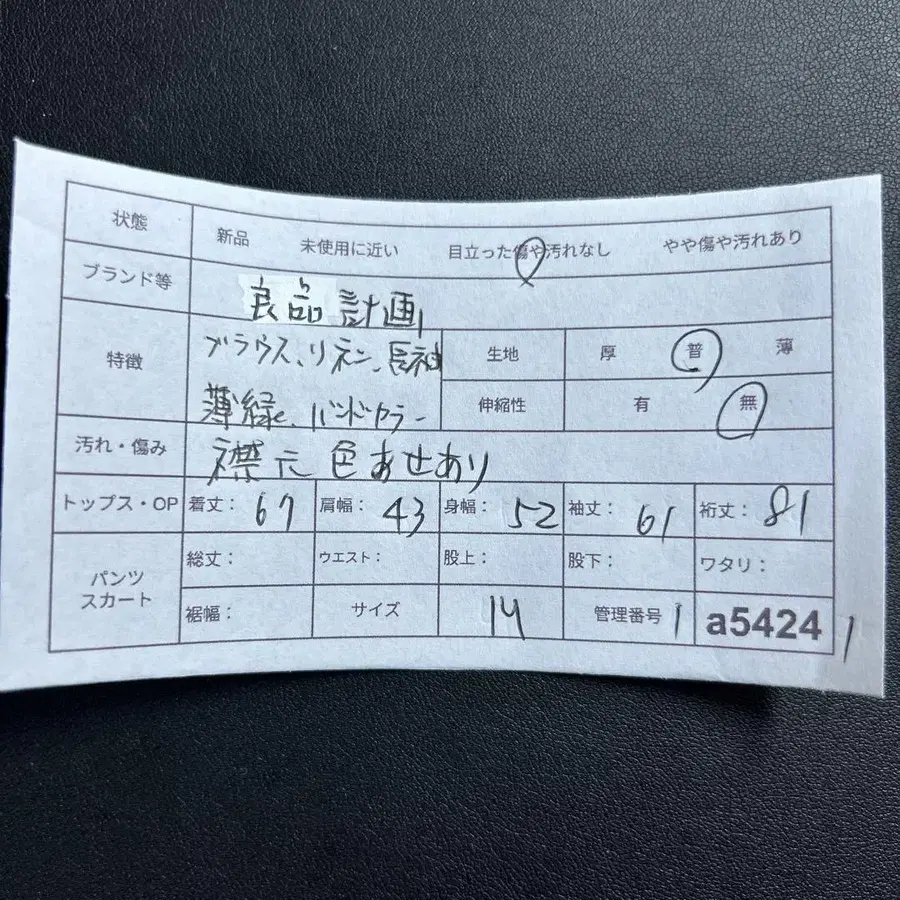 状態 新品 未使用に近い 目立った傷や汚れなし やや傷や汚れあり
ブランド等 良品計画
特徴 ブラウス、リネン、長袖 生地 厚 普 薄
薄緑、バンドカラー 伸縮性 有 無
汚れ・傷み 襟元色あせあり
トップス・OP 着丈: 67 肩幅: 43 身幅: 52 袖丈: 61 裄丈: 81
パンツ スカート 総丈: ウエスト: 股上: 股下: ワタリ:
裾幅: サイズ 管理番号 a5424